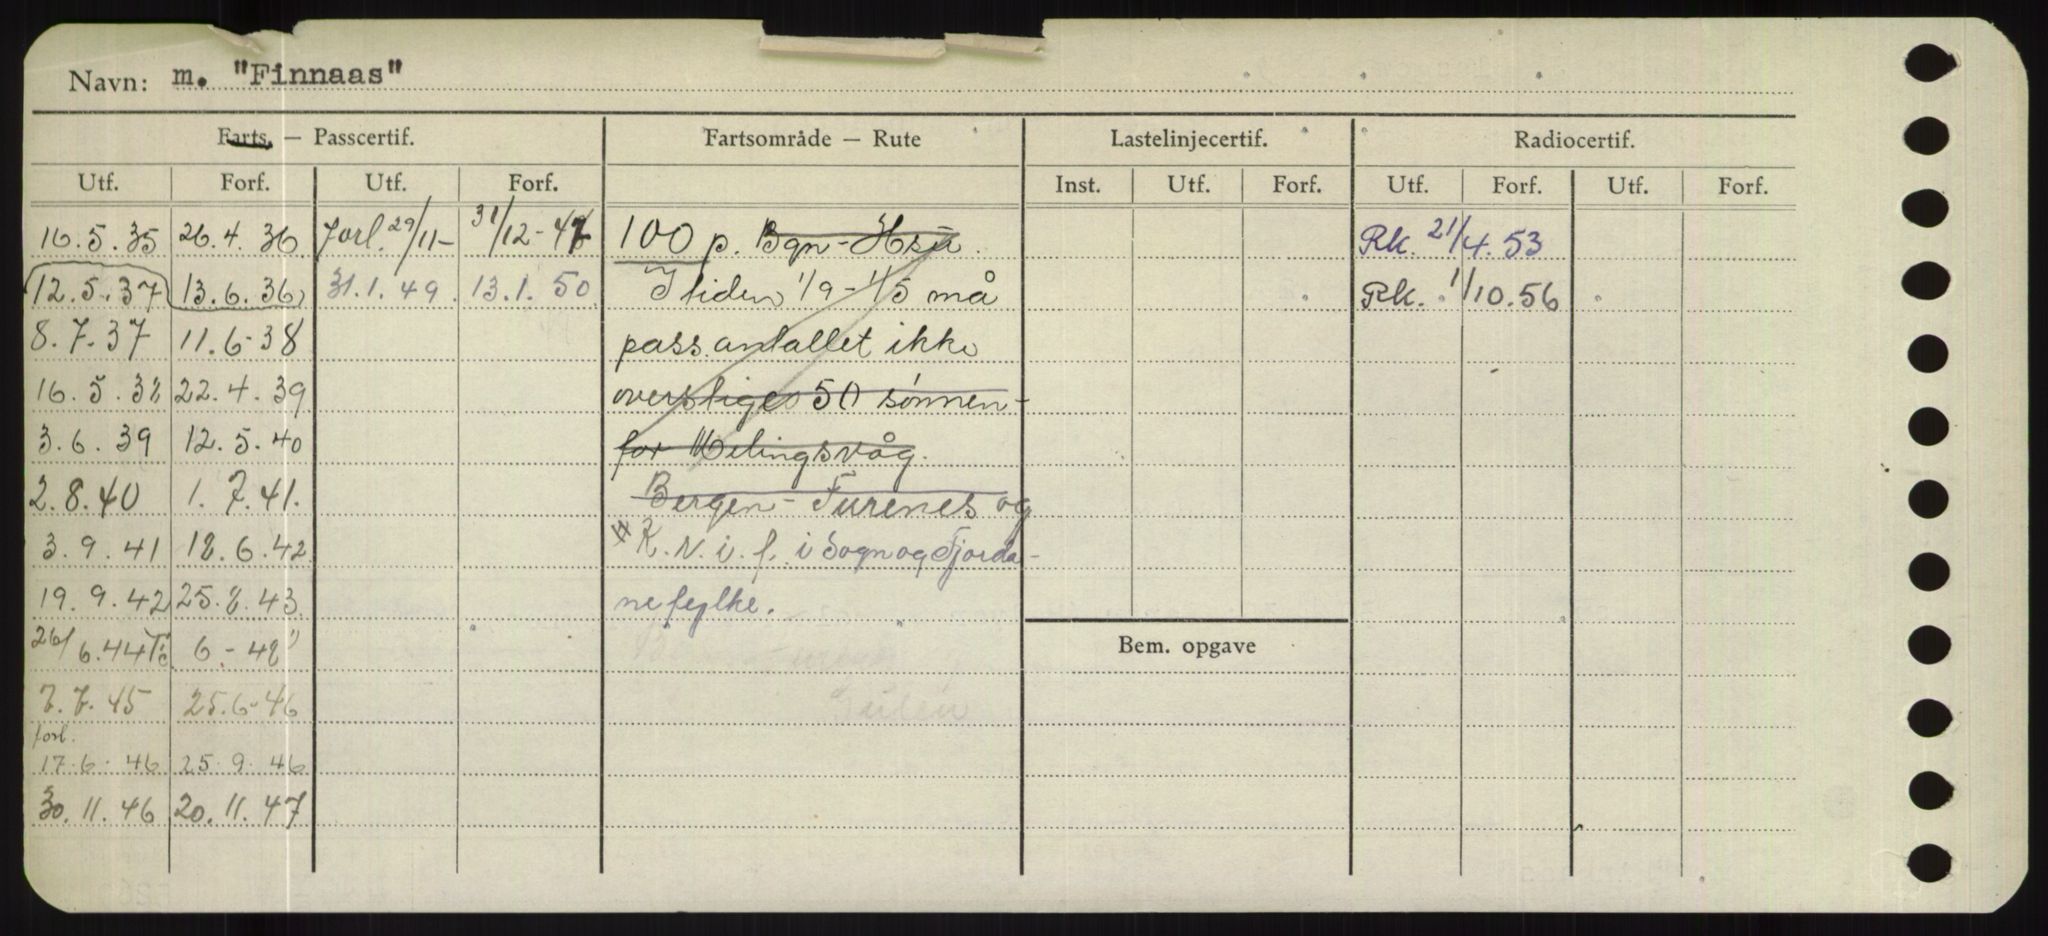 Navn: m. "Finnaas"
Farts. — Passcertif. Fartsområde — Rute Lastelinjecertif. Radiocertif.
Utf. Forf. Utf. Forf. Inst. Utf. Forf. Utf. Forf. Utf. Forf.
16.5.35 26.4.36 forl. 29/11- 31/12-47 100 p. Bgn- Rk. 21/4.53
12.5.37 13.6.36 31.1.49 13.1.50 I tiden 1/9-1/5 må Rk. 1/10.56
8.7.37 11.6.38 pass.antallet ikke
16.5.38 22.4.39 overstige 50 sønnen-
3.6.39 12.5.40 for Melingsvåg.
2.8.40 1.7.41. Bergen- Furenes og
3.9.41 18.6.42 K.N.i.f. i Sogn og Fjorda-
19.9.42 25.8.43. ne fylke.
26/6.44 6-48
Bem. opgave
7.7.45 25.6-46 Gulen
forl.
17.6.46 25.9.46
30.11.46 20.11.47